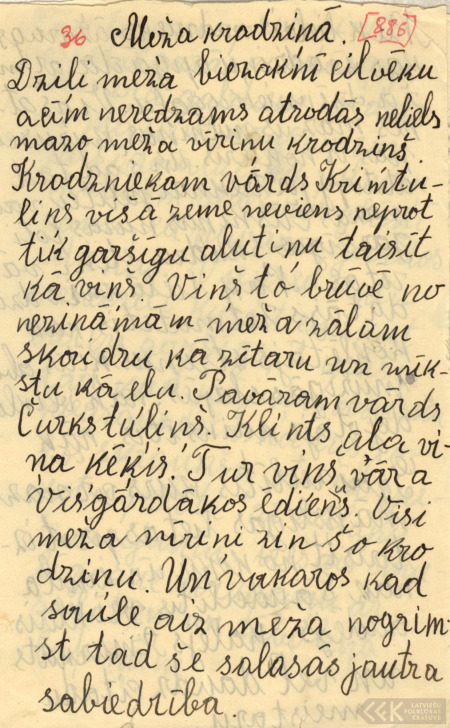 36 Meža krodziņā. [886]
Dziļi meža biezoknī cilvēku
acīm neredzams atrodās neliels
mazo meža vīriņu krodziņš
Krodzniekam vārds Krimtu-
liņš višā zeme neviens neprot
tik garšīgu alutiņu taisīt
kā viņš. Viņš to brūvē no
nezināmām meža zālām
skaidru kā zītaru un mīk-
stu kā eļu. Pavāram vārds
Čurkstuliņš. Klints ala vi-
ņa ķēķis. Tur viņš vāra
visgārdākos ēdieņš. Visi
meža vīriņi zin šo kro
dziņu. Un vakaros kad
saule aiz meža nogrim-
st tad še salasās jautra
sabiedrība.
LATVIEŠU
FOLKLORAS
KRĀTUVE